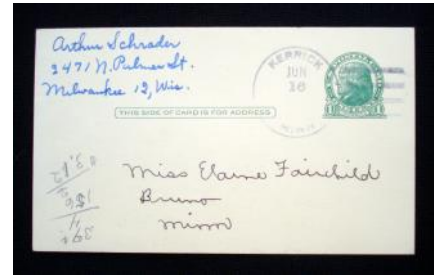 Arthur Schrader
2471 N. Palmer St.
Milwaukee 12, Wis.
KERRICK
JUN
16
THIS SIDE OF CARD IS FOR ADDRESS
Miss Elaine Fairchild
Bruno
Minn